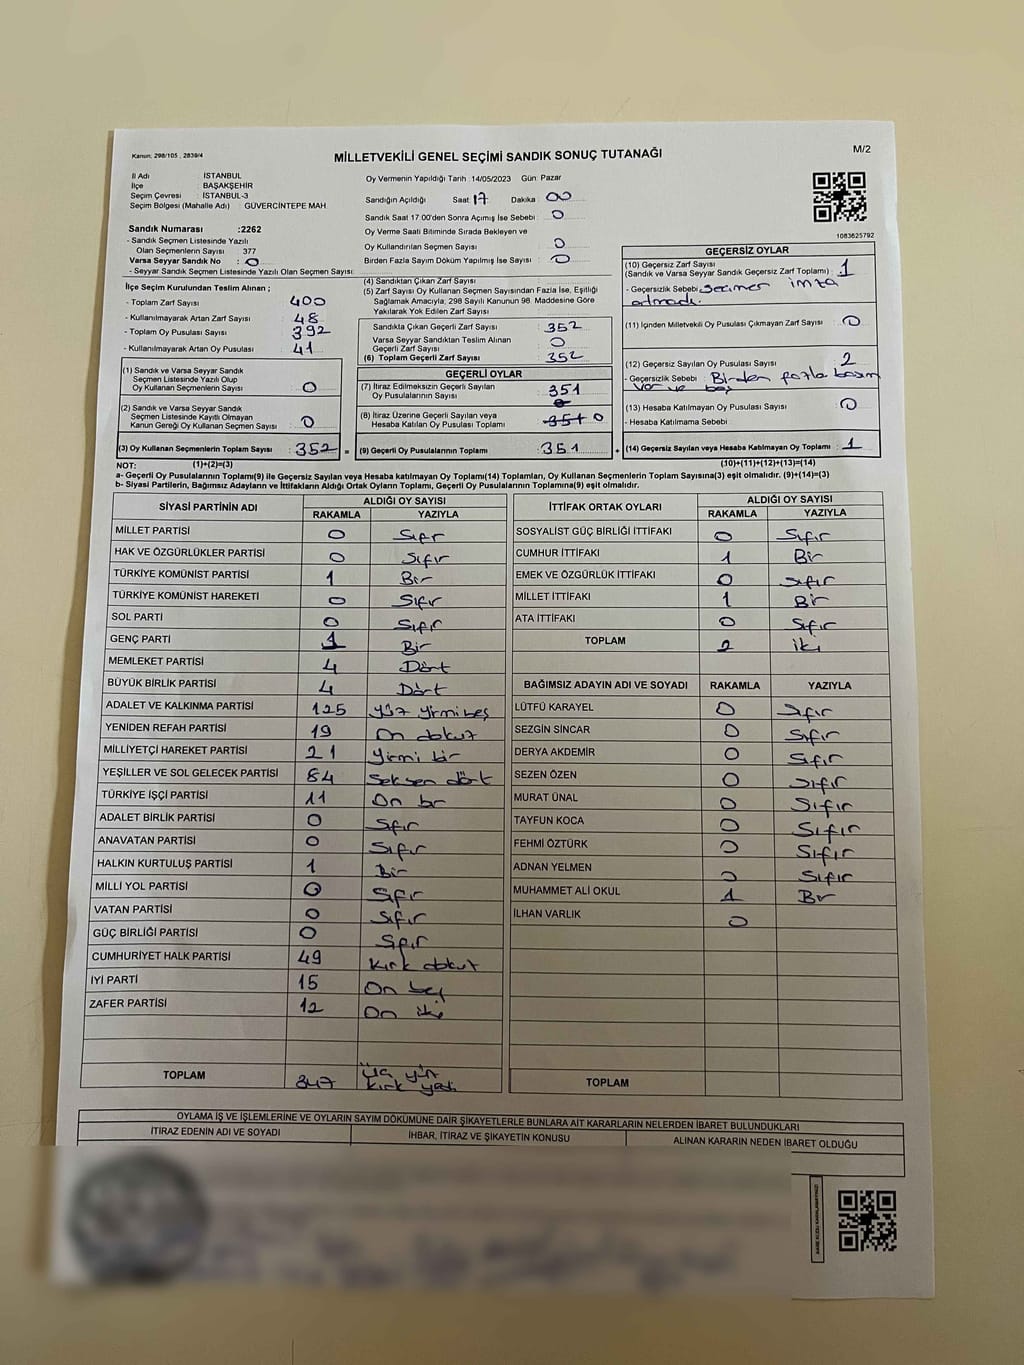 Kanun: 298/105 , 2839/4
MİLLETVEKİLİ GENEL SEÇİMİ SANDIK SONUÇ TUTANAĞI
M/2
İl Adı : İSTANBUL
İlçe : BAŞAKŞEHİR
Seçim Çevresi : İSTANBUL-3
Seçim Bölgesi (Mahalle Adı) : GÜVERCİNTEPE MAH.
Oy Vermenin Yapıldığı Tarih :14/05/2023 Gün: Pazar
Sandığın Açıldığı Saat: 17 Dakika : 00
Sandık Saat 17.00'den Sonra Açılmış İse Sebebi : 0
Oy Verme Saati Bitiminde Sırada Bekleyen ve
Oy Kullandırılan Seçmen Sayısı : 0
Birden Fazla Sayım Döküm Yapılmış İse Sayısı : 0
1083625792
Sandık Numarası :2262
- Sandık Seçmen Listesinde Yazılı
Olan Seçmenlerin Sayısı : 377
Varsa Seyyar Sandık No : 0
- Seyyar Sandık Seçmen Listesinde Yazılı Olan Seçmen Sayısı:
İlçe Seçim Kurulundan Teslim Alınan ;
- Toplam Zarf Sayısı : 400
- Kullanılmayarak Artan Zarf Sayısı : 48
- Toplam Oy Pusulası Sayısı : 392
- Kullanılmayarak Artan Oy Pusulası : 41
(1) Sandık ve Varsa Seyyar Sandık
Seçmen Listesinde Yazılı Olup
Oy Kullanan Seçmenlerin Sayısı : 0
(2) Sandık ve Varsa Seyyar Sandık
Seçmen Listesinde Kayıtlı Olmayan
Kanun Gereği Oy Kullanan Seçmen Sayısı : 0
(3) Oy Kullanan Seçmenlerin Toplam Sayısı : 352 =
(4) Sandıktan Çıkan Zarf Sayısı :
(5) Zarf Sayısı Oy Kullanan Seçmen Sayısından Fazla İse, Eşitliği
Sağlamak Amacıyla; 298 Sayılı Kanunun 98. Maddesine Göre
Yakılarak Yok Edilen Zarf Sayısı :
Sandıkta Çıkan Geçerli Zarf Sayısı : 352
Varsa Seyyar Sandıktan Teslim Alınan
Geçerli Zarf Sayısı : 0
(6) Toplam Geçerli Zarf Sayısı : 352
GEÇERLİ OYLAR
(7) İtiraz Edilmeksizin Geçerli Sayılan
Oy Pusulalarının Sayısı : 351
(8) İtiraz Üzerine Geçerli Sayılan veya
Hesaba Katılan Oy Pusulası Toplamı : 351 0
(9) Geçerli Oy Pusulalarının Toplamı : 351 +
GEÇERSİZ OYLAR
(10) Geçersiz Zarf Sayısı
(Sandık ve Varsa Seyyar Sandık Geçersiz Zarf Toplamı) : 1
- Geçersizlik Sebebi : Seçmen imza
atmadı.
(11) İçinden Milletvekili Oy Pusulası Çıkmayan Zarf Sayısı : 0
(12) Geçersiz Sayılan Oy Pusulası Sayısı : 2
- Geçersizlik Sebebi : Birden fazla basım
var ve boş
(13) Hesaba Katılmayan Oy Pusulası Sayısı : 0
- Hesaba Katılmama Sebebi :
(14) Geçersiz Sayılan veya Hesaba Katılmayan Oy Toplamı : 1
NOT: (1)+(2)=(3) (10)+(11)+(12)+(13)=(14)
a- Geçerli Oy Pusulalarının Toplamı(9) ile Geçersiz Sayılan veya Hesaba katılmayan Oy Toplamı(14) Toplamları, Oy Kullanan Seçmenlerin Toplam Sayısına(3) eşit olmalıdır. (9)+(14)=(3)
b- Siyasi Partilerin, Bağımsız Adayların ve İttifakların Aldığı Ortak Oyların Toplamı, Geçerli Oy Pusulalarının Toplamına(9) eşit olmalıdır.
SİYASİ PARTİNİN ADI ALDIĞI OY SAYISI
RAKAMLA YAZIYLA
MİLLET PARTİSİ 0 Sıfır
HAK VE ÖZGÜRLÜKLER PARTİSİ 0 Sıfır
TÜRKİYE KOMÜNİST PARTİSİ 1 Bir
TÜRKİYE KOMÜNİST HAREKETİ 0 Sıfır
SOL PARTİ 0 Sıfır
GENÇ PARTİ 1 Bir
MEMLEKET PARTİSİ 4 Dört
BÜYÜK BİRLİK PARTİSİ 4 Dört
ADALET VE KALKINMA PARTİSİ 125 Yüz yirmi beş
YENİDEN REFAH PARTİSİ 19 On dokuz
MİLLİYETÇİ HAREKET PARTİSİ 21 Yirmi bir
YEŞİLLER VE SOL GELECEK PARTİSİ 84 Seksen dört
TÜRKİYE İŞÇİ PARTİSİ 11 On bir
ADALET BİRLİK PARTİSİ 0 Sıfır
ANAVATAN PARTİSİ 0 Sıfır
HALKIN KURTULUŞ PARTİSİ 1 Bir
MİLLİ YOL PARTİSİ 0 Sıfır
VATAN PARTİSİ 0 Sıfır
GÜÇ BİRLİĞİ PARTİSİ 0 Sıfır
CUMHURİYET HALK PARTİSİ 49 Kırk dokuz
İYİ PARTİ 15 On beş
ZAFER PARTİSİ 12 On iki
TOPLAM 347 Üç yüz
kırk yedi
İTTİFAK ORTAK OYLARI ALDIĞI OY SAYISI
RAKAMLA YAZIYLA
SOSYALİST GÜÇ BİRLİĞİ İTTİFAKI 0 Sıfır
CUMHUR İTTİFAKI 1 Bir
EMEK VE ÖZGÜRLÜK İTTİFAKI 0 Sıfır
MİLLET İTTİFAKI 1 Bir
ATA İTTİFAKI 0 Sıfır
TOPLAM 2 iki
BAĞIMSIZ ADAYIN ADI VE SOYADI RAKAMLA YAZIYLA
LÜTFÜ KARAYEL 0 Sıfır
SEZGİN SİNCAR 0 Sıfır
DERYA AKDEMİR 0 Sıfır
SEZEN ÖZEN 0 Sıfır
MURAT ÜNAL 0 Sıfır
TAYFUN KOCA 0 Sıfır
FEHMİ ÖZTÜRK 0 Sıfır
ADNAN YELMEN 0 Sıfır
MUHAMMET ALİ OKUL 1 Bir
İLHAN VARLIK 0
TOPLAM
OYLAMA İŞ VE İŞLEMLERİNE VE OYLARIN SAYIM DÖKÜMÜNE DAİR ŞİKAYETLERLE BUNLARA AİT KARARLARIN NELERDEN İBARET BULUNDUKLARI
İTİRAZ EDENİN ADI VE SOYADI İHBAR, İTİRAZ VE ŞİKAYETİN KONUSU ALINAN KARARIN NEDEN İBARET OLDUĞU